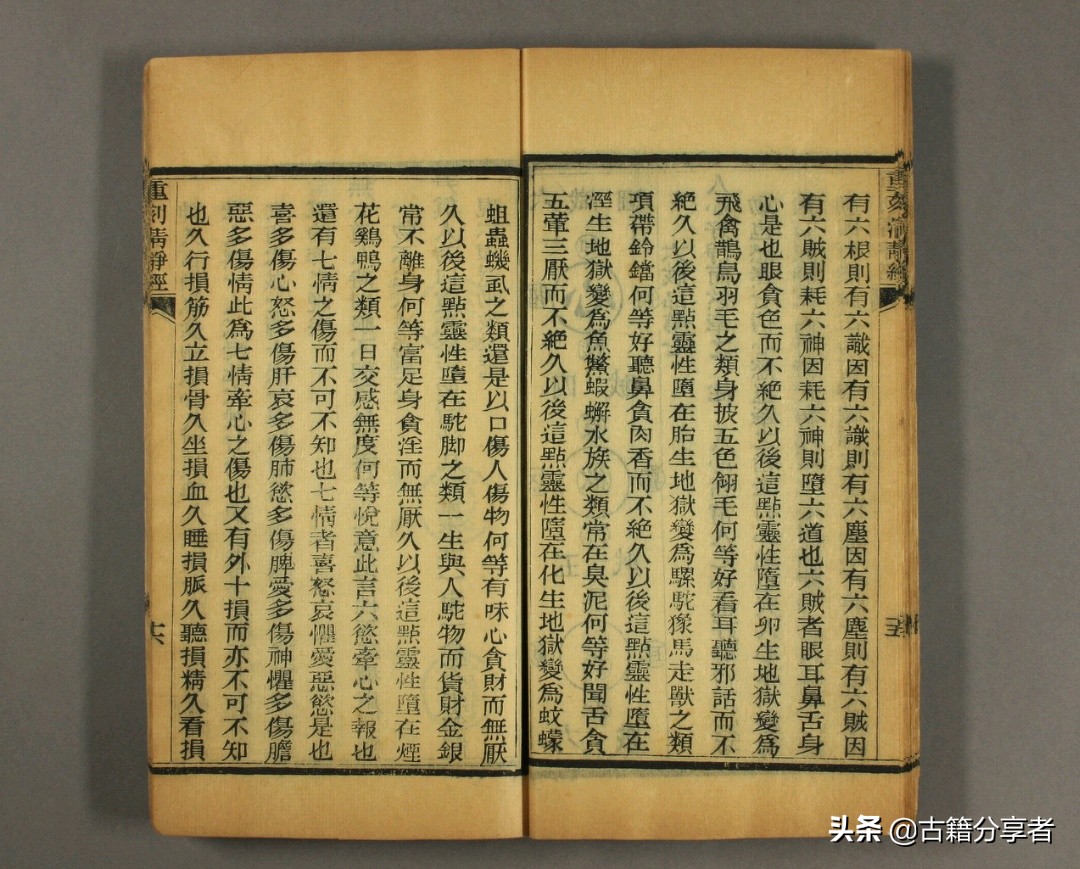 有六根則有六識因有六識則有六塵因有六塵則有六賊因
有六賊則耗六神因耗六神則墮六道也六賊者眼耳鼻舌身
心是也眼貪色而不絕久以後這點靈性墮在卵生地獄變爲
飛禽鵲鳥羽毛之類身披五色翎毛何等好看耳聽邪話而不
絕久以後這點靈性墮在胎生地獄變爲騾駝𧰼馬走獸之類
項帶鈴鐺何等好聽鼻貪肉香而不絕久以後這點靈性墮在
溼生地獄變爲魚鱉蝦蠏水族之類常在臭泥何等好聞舌貪
五葷三厭而不絕久以後這點靈性墮在化生地獄變爲蚊蠓
蛆蟲蟣虱之類還是以口傷人傷物何等有味心貪財而無厭
久以後這點靈性墮在駝脚之類一生與人駝物而貨財金銀
常不離身何等富足身貪淫而無厭久以後這點靈性墮在煙
花鷄鴨之類一日交感無度何等悅意此言六慾牽心之報也
還有七情之傷而不可不知也七情者喜怒哀懼愛惡慾是也
喜多傷心怒多傷肝哀多傷肺慾多傷脾愛多傷神懼多傷膽
惡多傷情此爲七情牽心之傷也又有外十損而亦不可不知
也久行損筋久立損骨久坐損血久睡損脈久聽損精久看損
重刻清靜經
十六
頭条 @古籍分享者